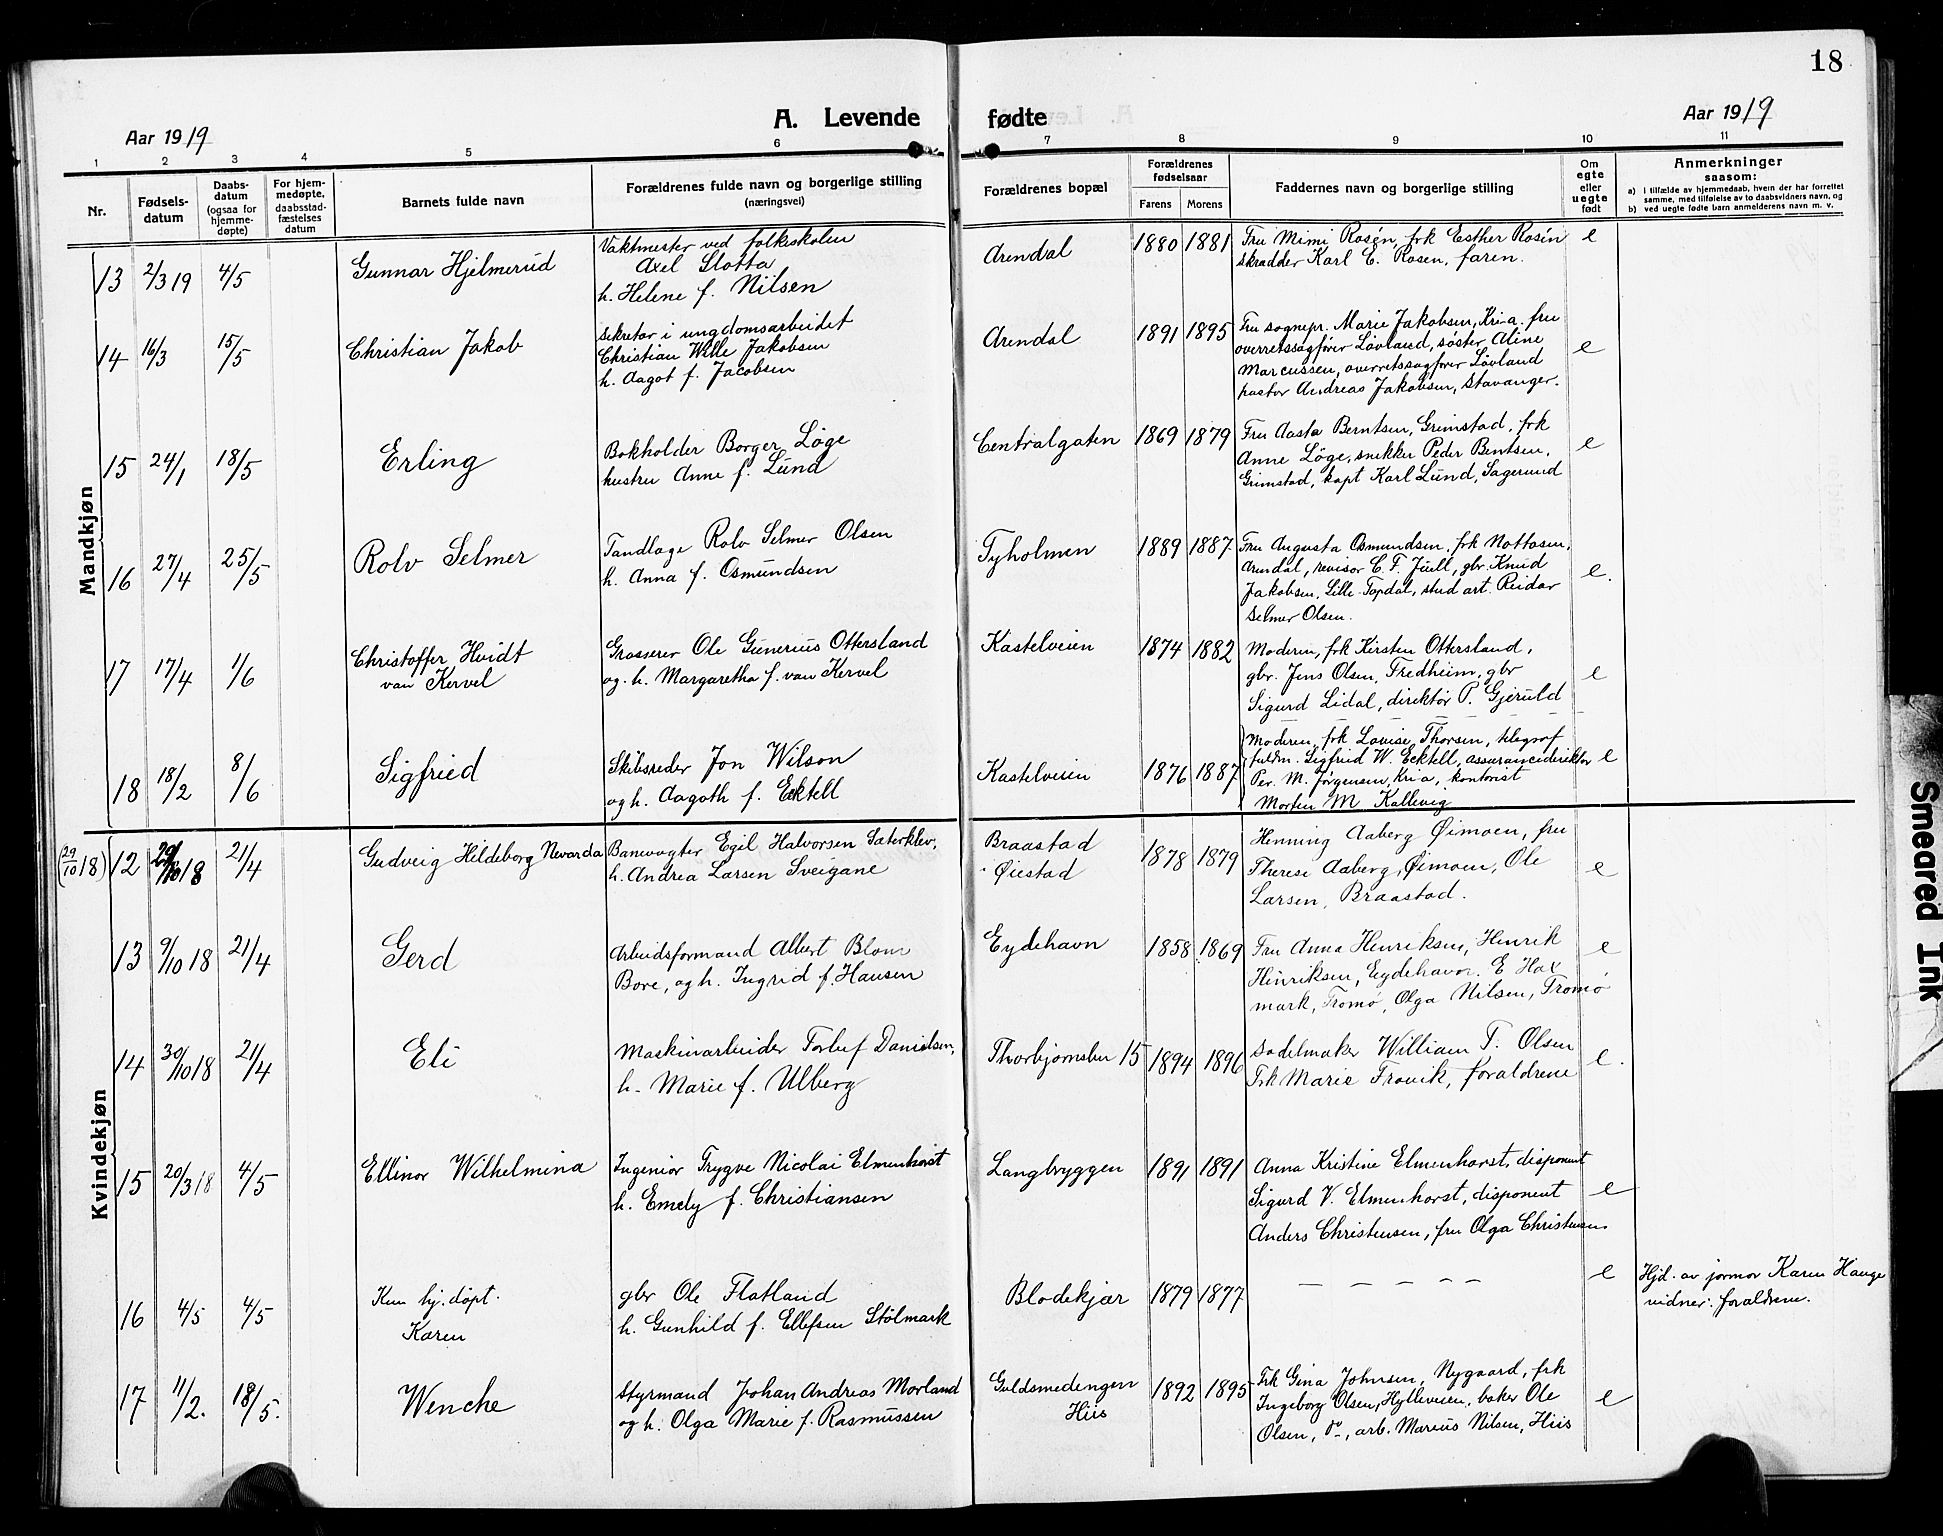 18
Aar 1919
A. Levende fødte
Aar 1919
1 2 3 4 5 6 7 8 9 10 11
Nr.
Fødsels-
datum
Daabs-
datum
(ogsaa for
hjemme-
døpte)
For hjem-
medøpte,
daabsstad-
fæstelses
datum
Barnets fulde navn
Forældrenes fulde navn og borgerlige stilling
(næringsvei)
Forældrenes bopæl
Forældrenes
fødselsaar
Farens Morens
Faddernes navn og borgerlige stilling
Om
egte
eller
uegte
født
Anmerkninger
saasom:
a) i tilfælde av hjemmedaab, hvem der har forrettet
samme, med tilføielse av to daabsvidners navn, og
b) ved uegte fødte barn anmelderens navn m. v.
Mandkjøn
13 2/3 19 4/5
Gunnar Hjelmerud
Vaktmester ved folkeskolen
Axel Slotta
h. Helene f. Nilsen
Arendal 1880 1881
Fru Mimi Rosén, frk Esther Rosén
skrædder Karl C. Rosen, faren.
e
14 16/3 15/5
Christian Jakob
Sekretær i ungdomsarbeidet
Christian Wille Jakobsen
h. Aagot f. Jacobsen
Arendal 1891 1895
Fru sognepr. Marie Jakobsen, Kria. fru
overretssagfører Løvland, søster Aline
Marcussen, overretssagfører Løvland
pastor Andreas Jakobsen, Stavanger.
e
15 24/1 18/5
Erling
Bokholder Borger Løge
hustru Anne f. Lund
Centralgaten 1869 1879
Fru Aasta Berntsen, Grimstad, frk
Anne Løge, snekker Peder Bentsen,
Grimstad, kapt Karl Lund, Sagesund
e
16 27/4 25/5
Rolv Selmer
Tandlæge Rolv Selmer Olsen
h. Anna f. Osmundsen
Tyholmen 1889 1887
Fru Augusta Osmundsen, frk Nottosen,
Arendal, revisor C. F. Juell, gbr. Knud
Jakobsen, Lille-Topdal, stud art. Reidar
Selmer Olsen.
e.
17 17/4 1/6
Christoffer Hvidt
van Kervel
Grosserer Ole Gunerius Ottersland
og h. Margaretha f. van Kervel
Kastelveien 1874 1882
Moderen, frk Kirsten Ottersland,
gbr. Jens Olsen, Fredheim, gbr
Sigurd Lidal, direktør P. Gjeruld
e
18 18/2 8/6
Sigfried
Skibsreder Jon Wilson
og h. Aagoth f. Ecktell
Kastelveien 1876 1887
Moderen, frk Lovise Thorsen, telegraf
fuldm. Sigfrid W. Ecktell, assurancedirektør
Per. M. Jørgensen, Kria, kontorist
Morten M Kallevig
e
Kvindekjøn
(29/10 18) 12 29/10 18 21/4
Gudveig Hildeborg Nevarda
Banevogter Egil Halvorsen Sæterklev,
h. Andrea Larsen Sveigane
Braastad
Øiestad
1878 1879
Henning Aaberg Øimoen, fru
Therese Aaberg, Øimoen, Ole
Larsen, Braastad.
e
13 9/10 18 21/4
Gerd
Arbeidsformand Albert Blom
Bore, og h. Ingrid f. Hansen
Eydehavn 1858 1869
Fru Anna Henriksen, Henrik
Henriksen, Eydehavn. E Hol
mark, Tromø, Olga Nilsen, Tromø
e
14 30/10 18 21/4
Eli
Maskinarbeider Torluf Danielsen,
h. Marie f. Ulberg
Thorbjørnsbu 15 1894 1896
Sadelmaker William T. Olsen
Frk Marie Frovik, forældrene
e.
15 20/3 18 4/5
Ellinor Wilhelmina
Ingeniør Trygve Nicolai Elmenhorst
h. Emely f. Christiansen
Langbryggen 1891 1891
Anna Kristine Elmenhorst, disponent
Sigurd V. Elmenhorst, disponent
Anders Christensen, fru Olga Christensen
e
16 4/5 4/5
Kun hj. døpt.
Karen
gbr Ole Flatland
h. Gunhild f. Ellefsen Stølmark
Blødekjær 1879 1877
— — — — —
e
Hjd. av jormor Karen Hauge
vidner: forældrene.
17 11/2. 18/5.
Wenche
Styrmand Johan Andreas Morland
og h. Olga Marie f. Rasmussen
Guldsmedengen
Hiis
1892 1895
Frk Gina Johnsen, Nygaard, frk
Ingeborg Olsen, Hylleveien, baker Ole
Olsen, do, arb. Marius Nilsen, Hiis
e
Smeared Ink